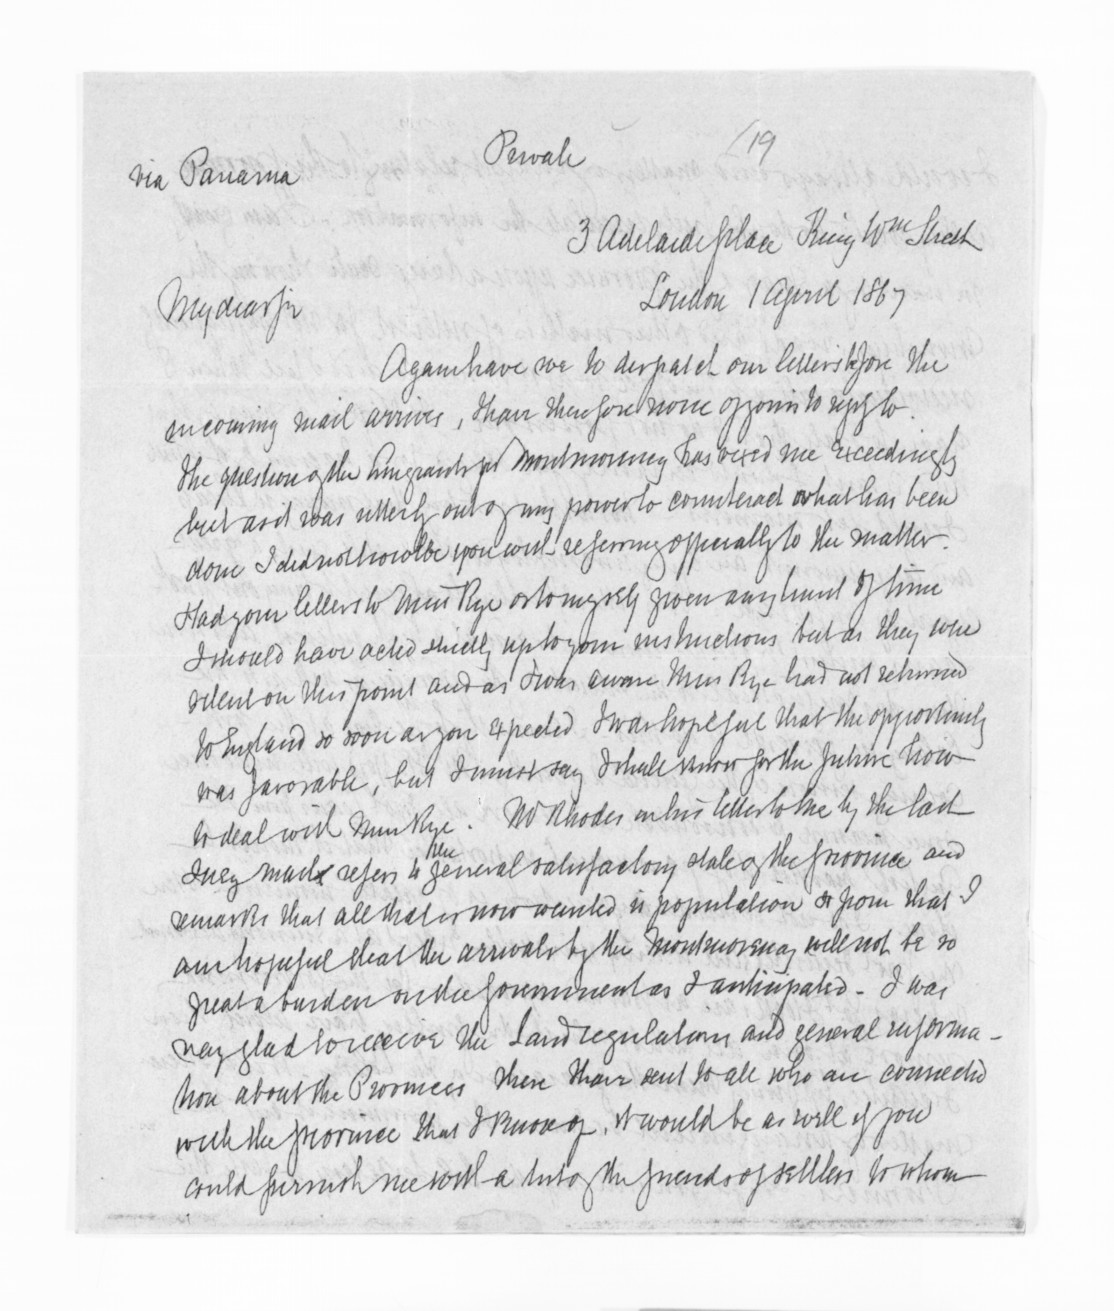 Private
(19
via Panama
3 Adelaide place King Wm Street
London 1 April 1867
My dear Sir
Again have we to despatch our letters before the
incoming mail arrives, I have therefore none of yours to reply to.
The question of the Emigrants pr Montmorency has vexed me exceedingly
but as it was utterly out of my power to counteract what has been
done I did not trouble you with referring officially to the matter.
Had your letters to Miss Rye or to myself given any limit of time
I should have acted strictly up to your instructions but as they were
silent on this point and as I was aware Miss Rye had not returned
to England so soon as you expected I was hopeful that the opportunity
was favorable, but I must say I shall know for the future how
to deal with Miss Rye. Mr Rhodes in his letter to me by the last
Suez mail refers to the general satisfactory state of the province and
remarks that all that is now wanted is population & from that I
am hopeful that the arrivals by the Montmorency will not be so
great a burden on the Government as I anticipated - I was
very glad to receive the Land regulations and general informa-
tion about the Provinces these I have sent to all who are connected
with the province that I know of, it would be as well if you
could furnish me with a list of the friends of settlers to whom